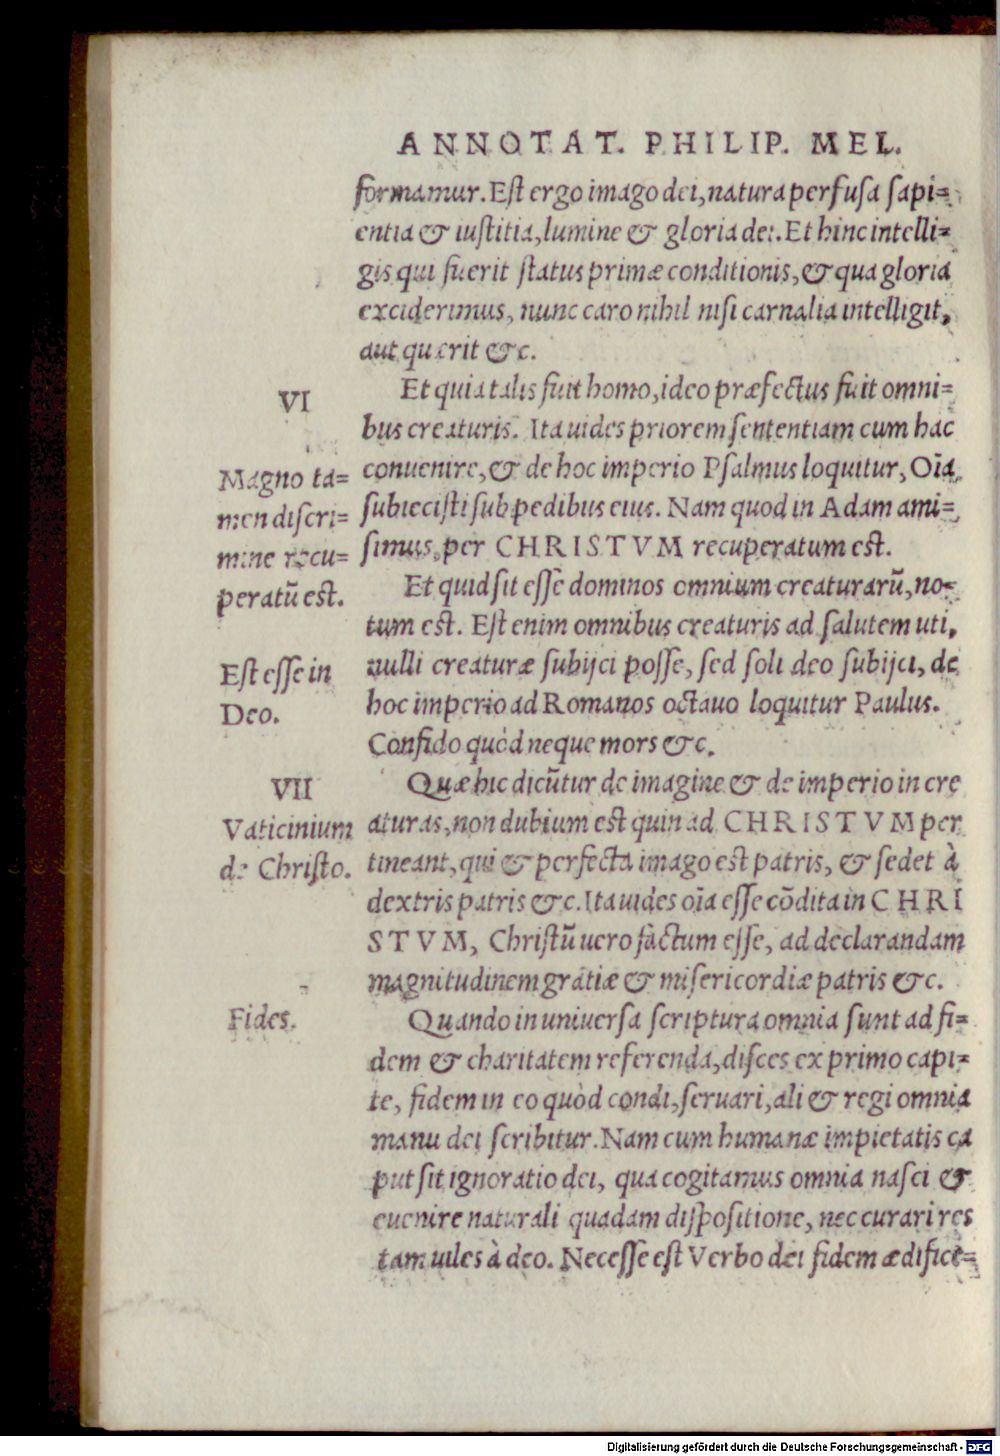 ANNOTAT. PHILIP. MEL.
formamur. Est ergo imago dei, natura perfusa sapi=
entia & iustitia, lumine & gloria dei. Et hinc intelli=
gis qui fuerit status primæ conditionis, & qua gloria
exciderimus, nunc caro nihil nisi carnalia intelligit,
aut quærit &c.
VI
Et quia talis fuit homo, ideo præfectus fuit omni=
bus creaturis. Ita uides priorem sententiam cum hac
conuenire, & de hoc imperio Psalmus loquitur, Oīa
subiecisti sub pedibus eius. Nam quod in Adam ami=
simus, per CHRISTVM recuperatum est.
Magno ta=
men discri=
mine recu=
peratū est.
Et quid sit esse dominos omnium creaturarū, no=
tum est. Est enim omnibus creaturis ad salutem uti,
nulli creaturæ subijci posse, sed soli deo subijci, de
hoc imperio ad Romanos octauo loquitur Paulus.
Confido quòd neque mors &c.
Est esse in
Deo.
VII
Vaticinium
de Christo.
Quæ hic dicūtur de imagine & de imperio in cre
aturas, non dubium est quin ad CHRISTVM per
tineant, qui & perfecta imago est patris, & sedet à
dextris patris &c. Ita uides oīa esse cōdita in CHRI
STVM, Christū uero factum esse, ad declarandam
magnitudinem gratiæ & misericordiæ patris &c.
Fides.
Quando in uniuersa scriptura omnia sunt ad fi=
dem & charitatem referenda, disces ex primo capi=
te, fidem in eo quòd condi, seruari, ali & regi omnia
manu dei scribitur. Nam cum humanæ impietatis ca
put sit ignoratio dei, qua cogitamus omnia nasci &
euenire naturali quadam dispositione, nec curari res
tam uiles à deo. Necesse est Verbo dei fidem ædifice=
Digitalisierung gefördert durch die Deutsche Forschungsgemeinschaft - DFG